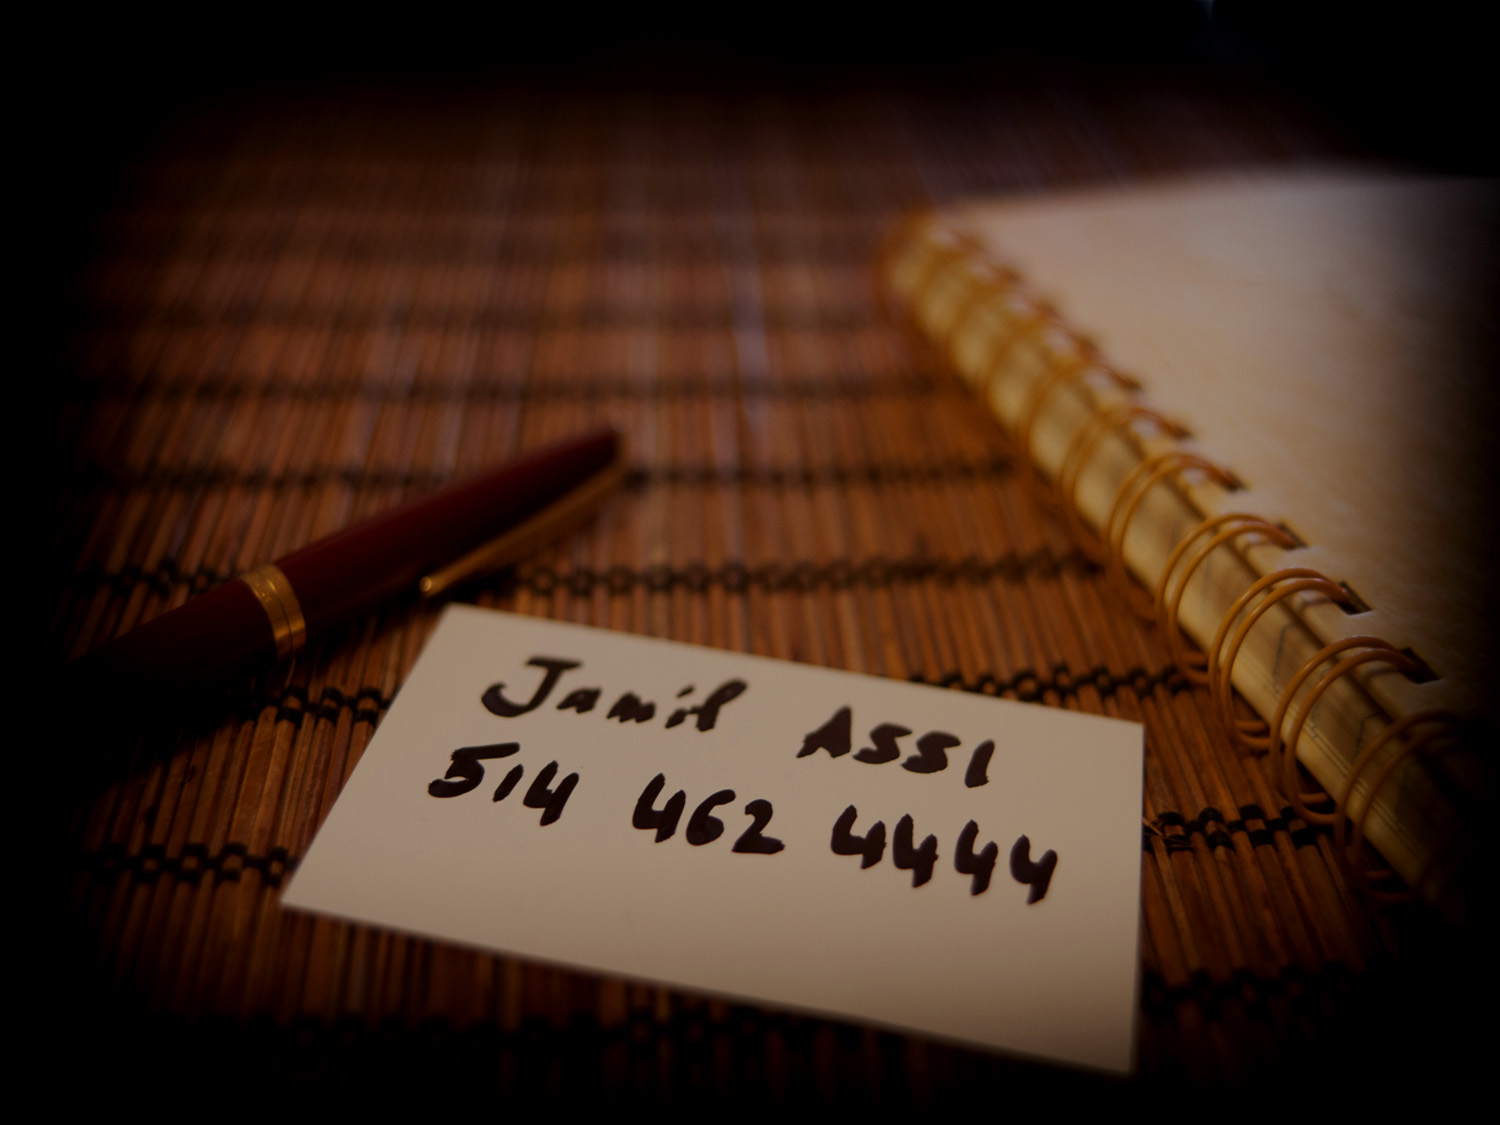 Jamil ASSI
514 462 4444